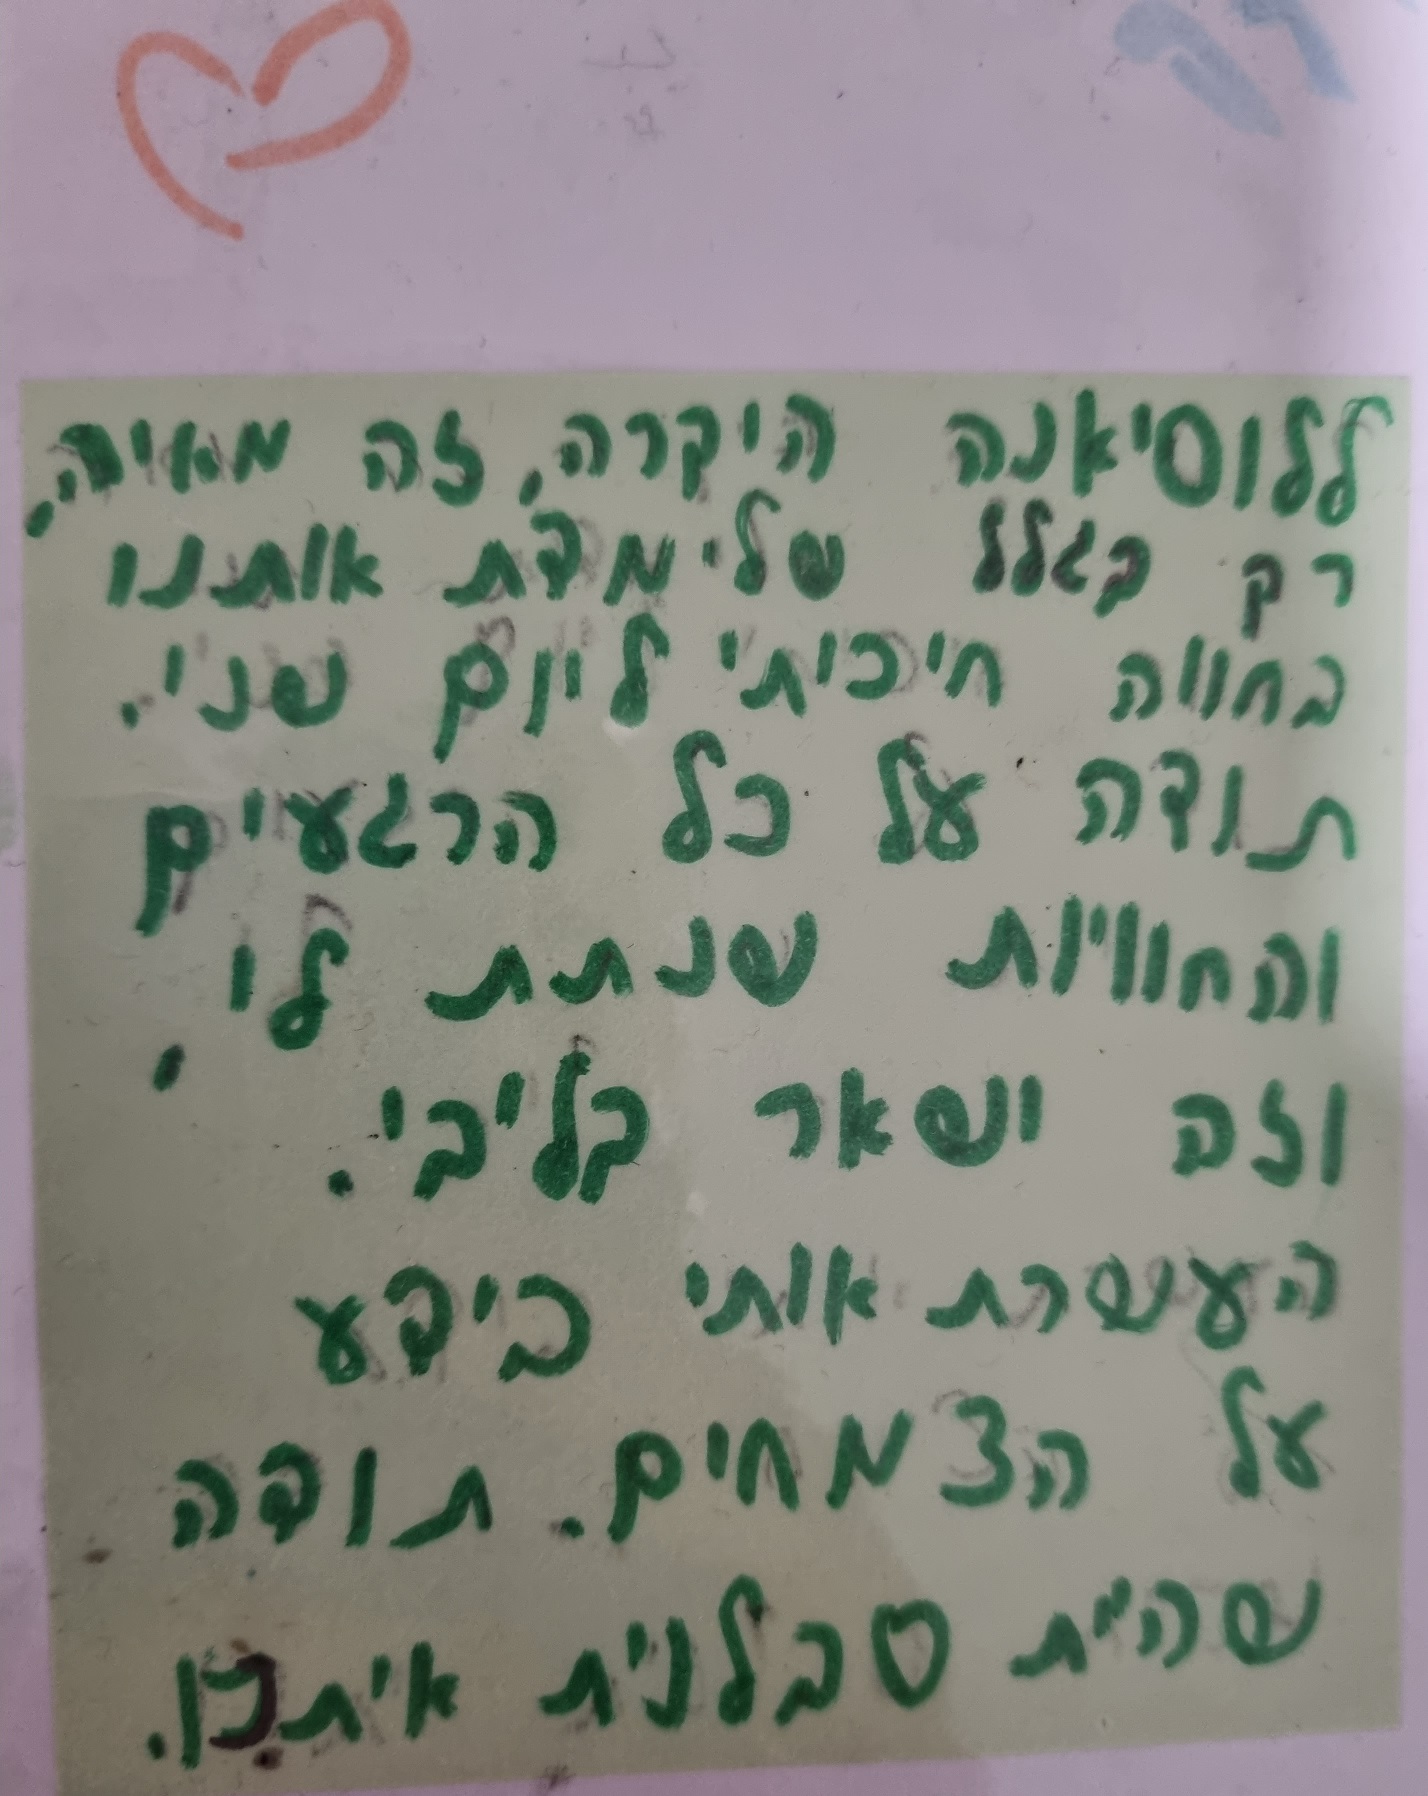 ללוסיאנה היקרה, זה מאיה,
רק בגלל שלימדת אותנו
בחווה חיכיתי ליום שני.
תודה על כל הרגעים
והחוויות שנתת לי,
וזה ישאר בליבי.
העשרת אותי בידע
על הצמחים. תודה
שהיית סבלנית אית